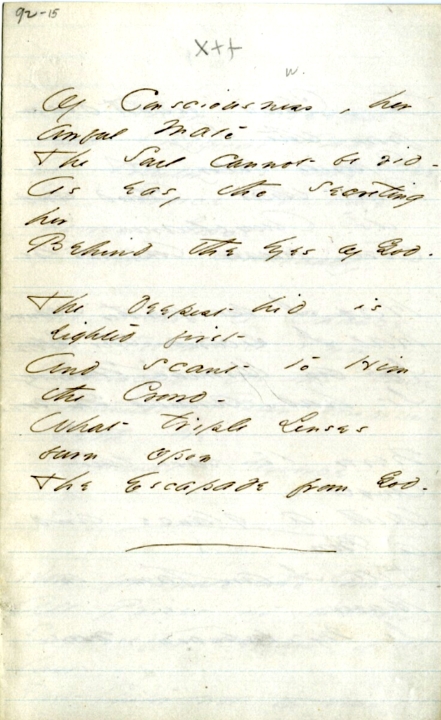 92-15
X++
w.
Of Consciousness, her
awful Mate
The Soul cannot be rid -
As easy the secreting
her
Behind the Eyes of God.
The deepest hid is
sighted first
And scant to Him
the Crowd -
What triple Lenses
burn upon
The Escapade from God -